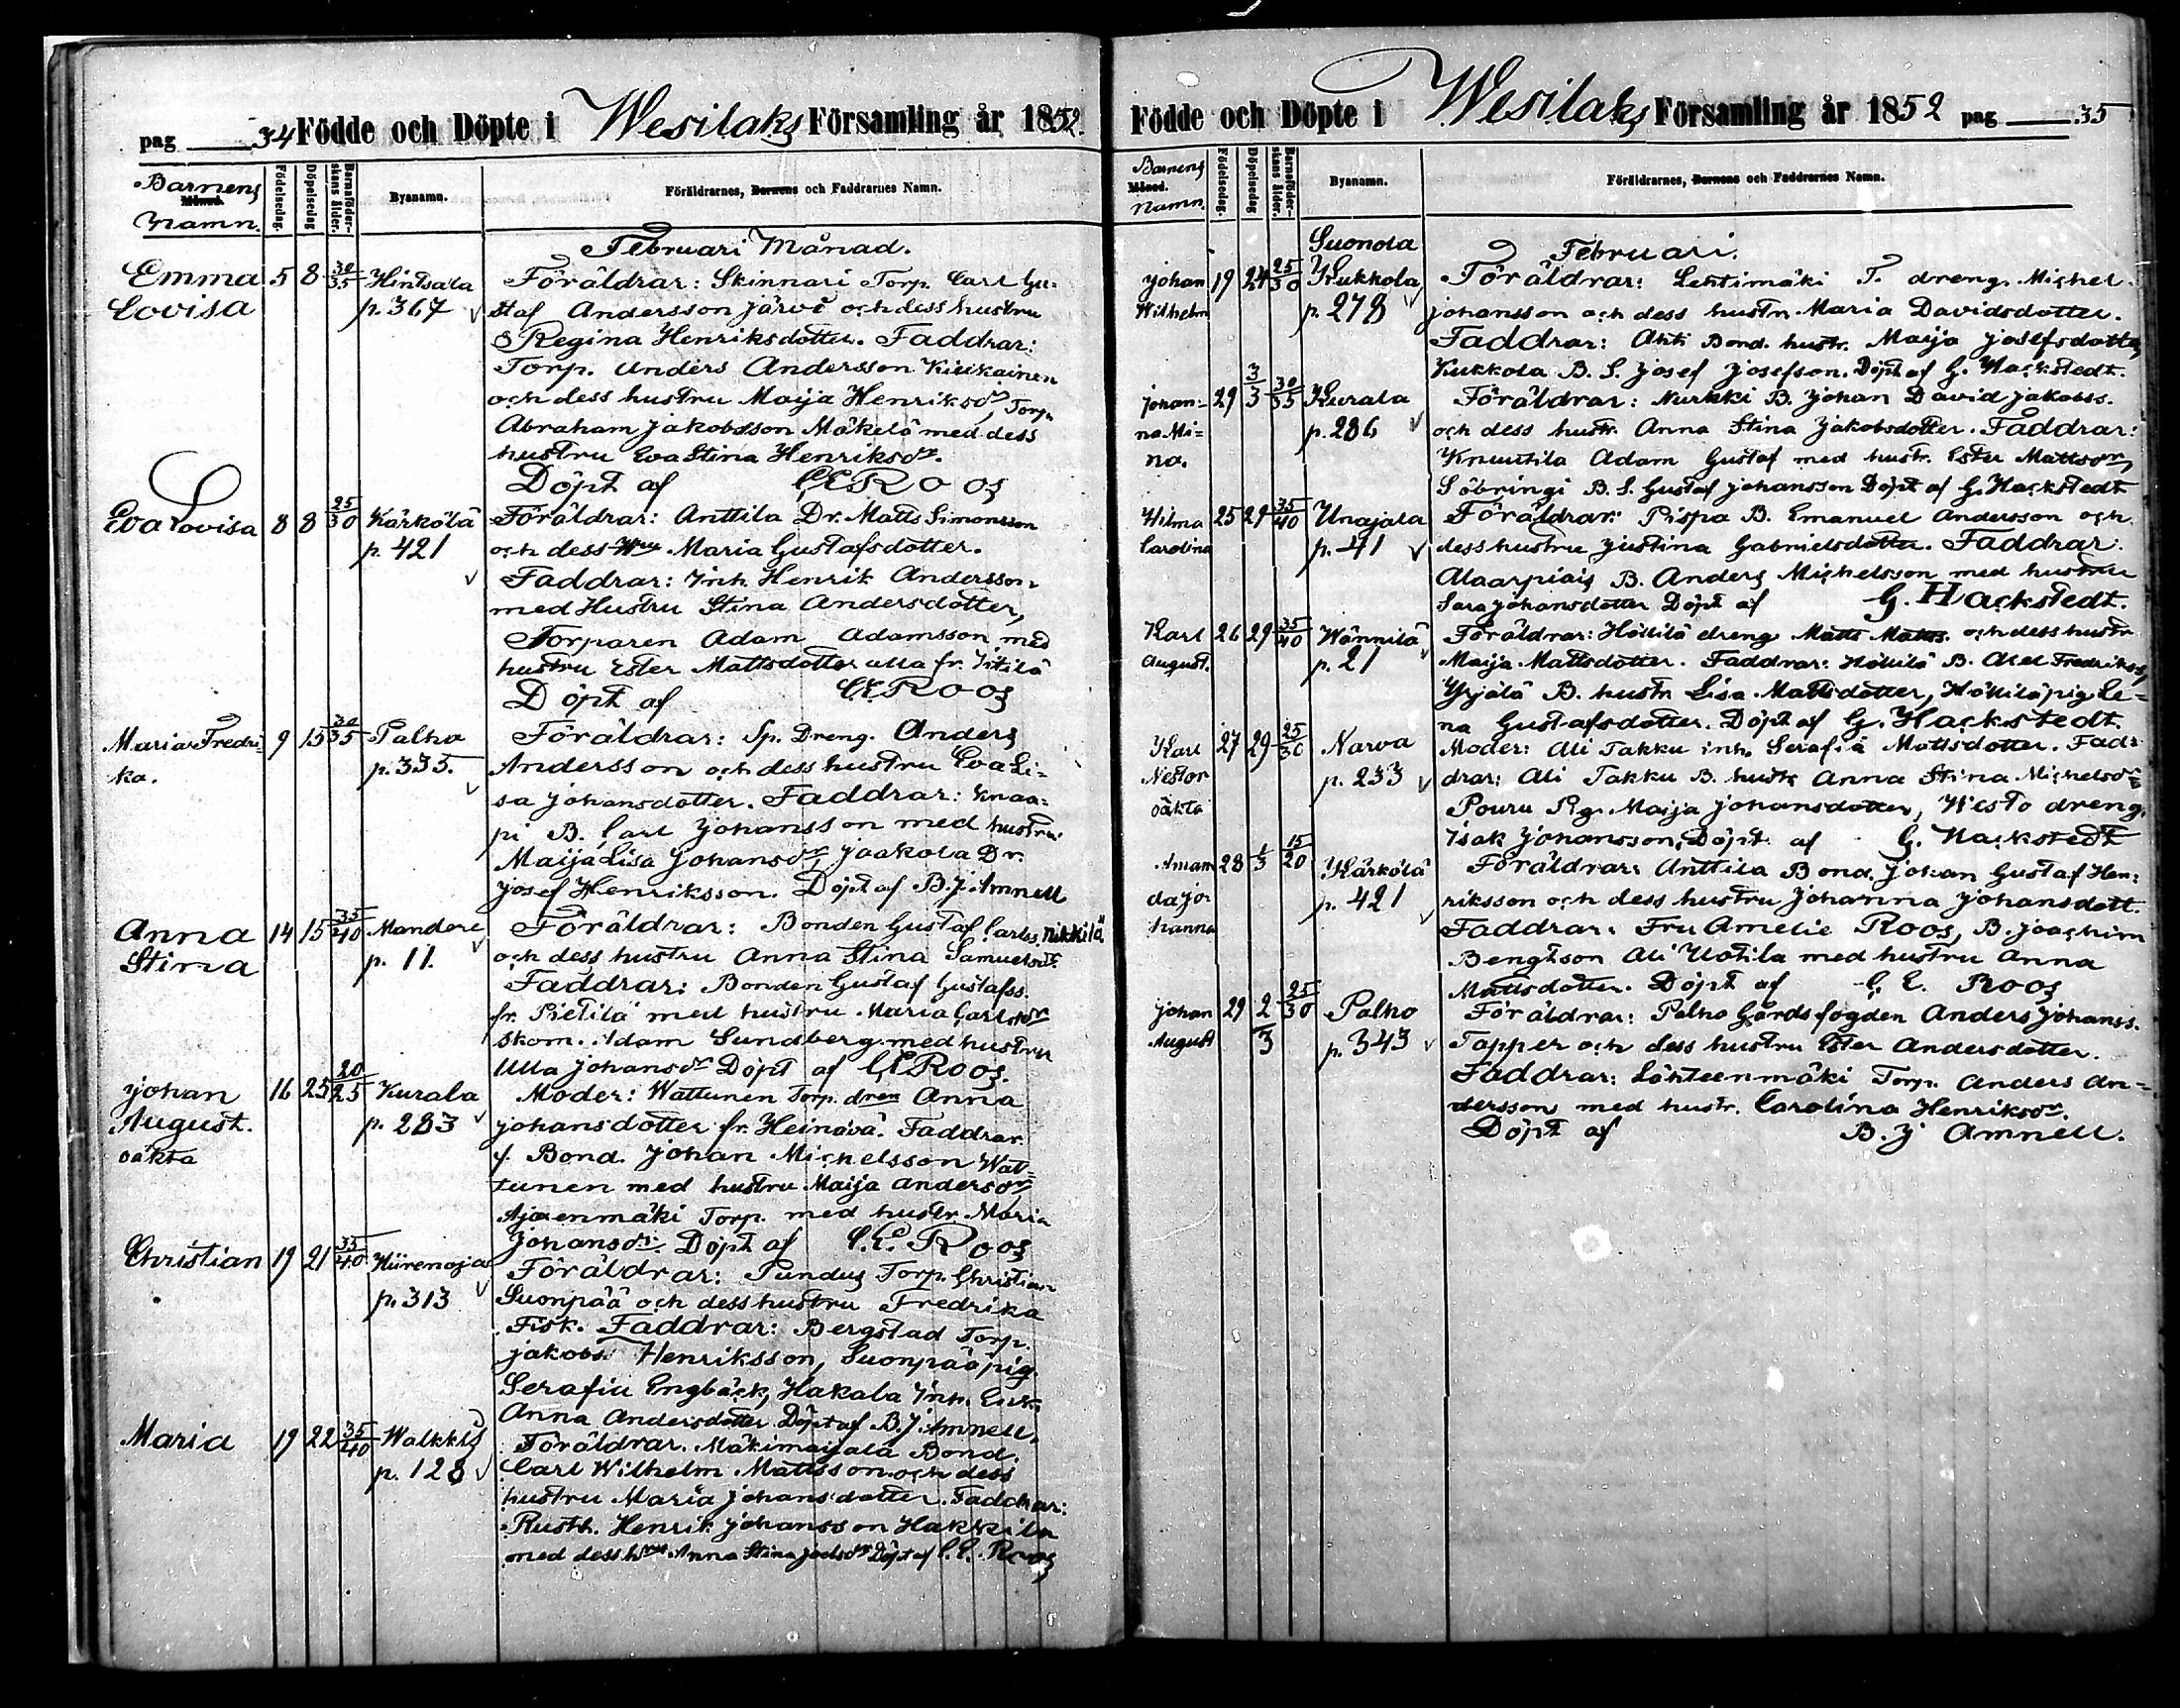 pag 34 Födde och Döpte i Wesilaks Församling år 1852.
Barnens Månad. Namn. Födelsedag. Döpelsedag Barnaföderskans ålder. Byanamn. Föräldrarnes, Barnens och Faddrarnes Namn.
Februari Månad.
Emma 5 8 30/35 Hintsala Föräldrar: Skinnari Torp. Carl Gu-
Lovisa p. 367 staf Andersson Järvi och dess hustru
Regina Henriksdotter. Faddrar:
Torp. Anders Andersson Kiikainen
och dess hustru Maija Henriksdr, Torp.
Abraham Jakobsson Mäkelä med dess
hustru Eva Stina Henriksdr.
Döpt af C.E. Roos
Eva Lovisa 8 8 25/30 Kärkölä Föräldrar: Anttila Dr. Matts Simonsson
p. 421 och dess Hru Maria Gustafsdotter.
Faddrar: Inh. Henrik Andersson
med Hustru Stina Andersdotter,
Torparen Adam Adamsson med
hustru Ester Mattsdotter alla fr.
Döpt af C.E. Roos
Maria Fredri- 9 15 30/35 Palho Föräldrar: Sp. Dreng. Anders
ka. p. 335. Andersson och dess hustru Eva Li-
sa Johansdotter. Faddrar: Knaa-
pi B. Carl Johansson med hustru
Maija Lisa Johansdr, Jaakola Dr.
Josef Henriksson. Döpt af B.J. Amnell
Anna 14 15 35/40 Mandere Föräldrar: Bonden Gustaf Carls. Nikkilä
Stina p. 11. och dess hustru Anna Stina Samuelsdr.
Faddrar: Bonden Gustaf Gustafss.
fr. Pietilä med hustru Maria Carlsdr
skom. Adam Sundberg med hustru
Ulla Johansdr Döpt af C.E. Roos.
Johan 16 25 20/25 Kurala Moder: Wattunen Torp. dren Anna
August. p. 283 Johansdotter fr. Heinävä. Faddrar
oäkta f. Bond. Johan Michelsson Wat-
tunen med hustru Maija Andersdr,
Ajoxenmäki Torp. med hustr. Maria
Johansdr. Döpt af C.E. Roos
Christian 19 21 35/40 Hiirenoja Föräldrar: Pundus Torp. Christian
p. 313 Suonpää och dess hustru Fredrika
Fisk. Faddrar: Bergstad Torp.
Jakob Henriksson, Suonpää pig.
Serafia Engbäck, Hakala Inh. Enk.
Anna Andersdotter Döpt af B.J. Amnell.
Maria 19 22 35/40 Walkkis Föräldrar. Mäkimaijala Bond.
p. 128 Carl Wilhelm Mattsson och dess
hustru Maria Johansdotter. Faddrar:
Rusth. Henrik Johansson Hakkila
med dess hru Anna Stina Döpt af C.E. Roos
Födde och Döpte i Wesilaks Församling år 1852 pag 35
Barnens Månad. Namn. Födelsedag. Döpelsedag Barnaföderskans ålder. Byanamn. Föräldrarnes, Barnens och Faddrarnes Namn.
Suonola Februari.
Johan 19 24 25/30 Kukkola Föräldrar: Lehtimäki T. dreng. Michel
Wilhelm p. 278 Johansson och dess hustr. Maria Davidsdotter.
Faddrar: Ahti Bond. hustr. Maija Josefsdotter,
Kukkola B. S. Josef Josefson. Döpt af G. Hackstedt.
Johan- 29 3/3 30/35 Kurala Föräldrar: Nurkki B. Johan David Jakobss.
na Mi- p. 286 och dess hustr. Anna Stina Jakobsdotter. Faddrar:
na. Knuutila Adam Gustaf med hustr. Ester Mattsdr,
Söbringi B. S. Gustaf Johansson Döpt af G. Hackstedt
Hilma 25 29 35/40 Unajala Föräldrar: Pispa B. Emanuel Andersson och
Carolina p. 41 dess hustru Justina Gabrielsdotter. Faddrar.
Alaarpiais B. Anders Michelsson med hustru
Sara Johansdotter Döpt af G. Hackstedt.
Karl 26 29 35/40 Wännilä Föräldrar: Höllilä dreng Matts Matts. och dess hustr
August. p. 21 Maija Mattsdotter. Faddrar: Höllilä B. Axel Fredrikss,
Yrjälä B. hustr Lisa Mattsdotter, Höllilä pig. Le-
na Gustafsdotter. Döpt af G. Hackstedt
Karl 27 29 25/30 Narva Moder: Ali Takku inh. Serafia Mattsdotter. Fad-
Nestor p. 233 drar: Ali Takku B. hustr Anna Stina Michelsdr
oäkta Pouru Pig. Maija Johansdotter, Westo dreng.
Isak Johansson, Döpt af G. Hackstedt
Aman 28 1/3 15/20 Kärkölä Föräldrar: Anttila Bond. Johan Gustaf Hen-
da Jo- p. 421 riksson och dess hustru Johanna Johansdott.
hanna Faddrar: Fru Amelie Roos, B. Joachim
Bengtson Ali Uotila med hustru Anna
Mattsdotter. Döpt af C. E. Roos
Johan 29 2/3 25/30 Palho Föräldrar: Palho Gårdsfogden Anders Johanss.
August p. 343 Tapper och dess hustru Ester Andersdotter.
Faddrar: Lähteenmäki Torp. Anders An-
dersson med hustr. Carolina Henriksdr.
Döpt af B. J Amnell.